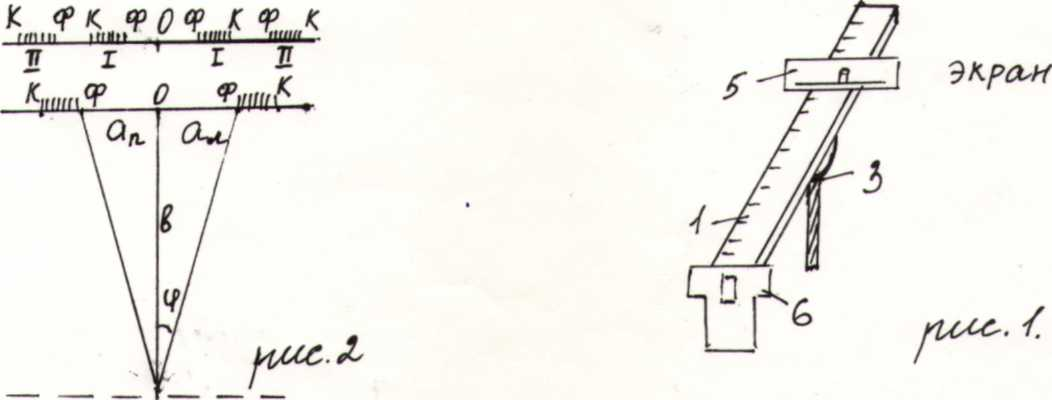 К Ф К Ф О Ф К Ф К
II I I II
К Ф О Ф К
aп aл
в
φ
рис. 2
5 экран
3
1
6
рис. 1.